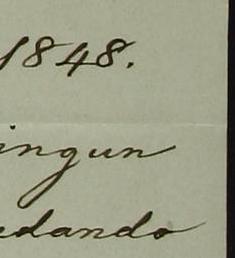 1848.
ingun
dando